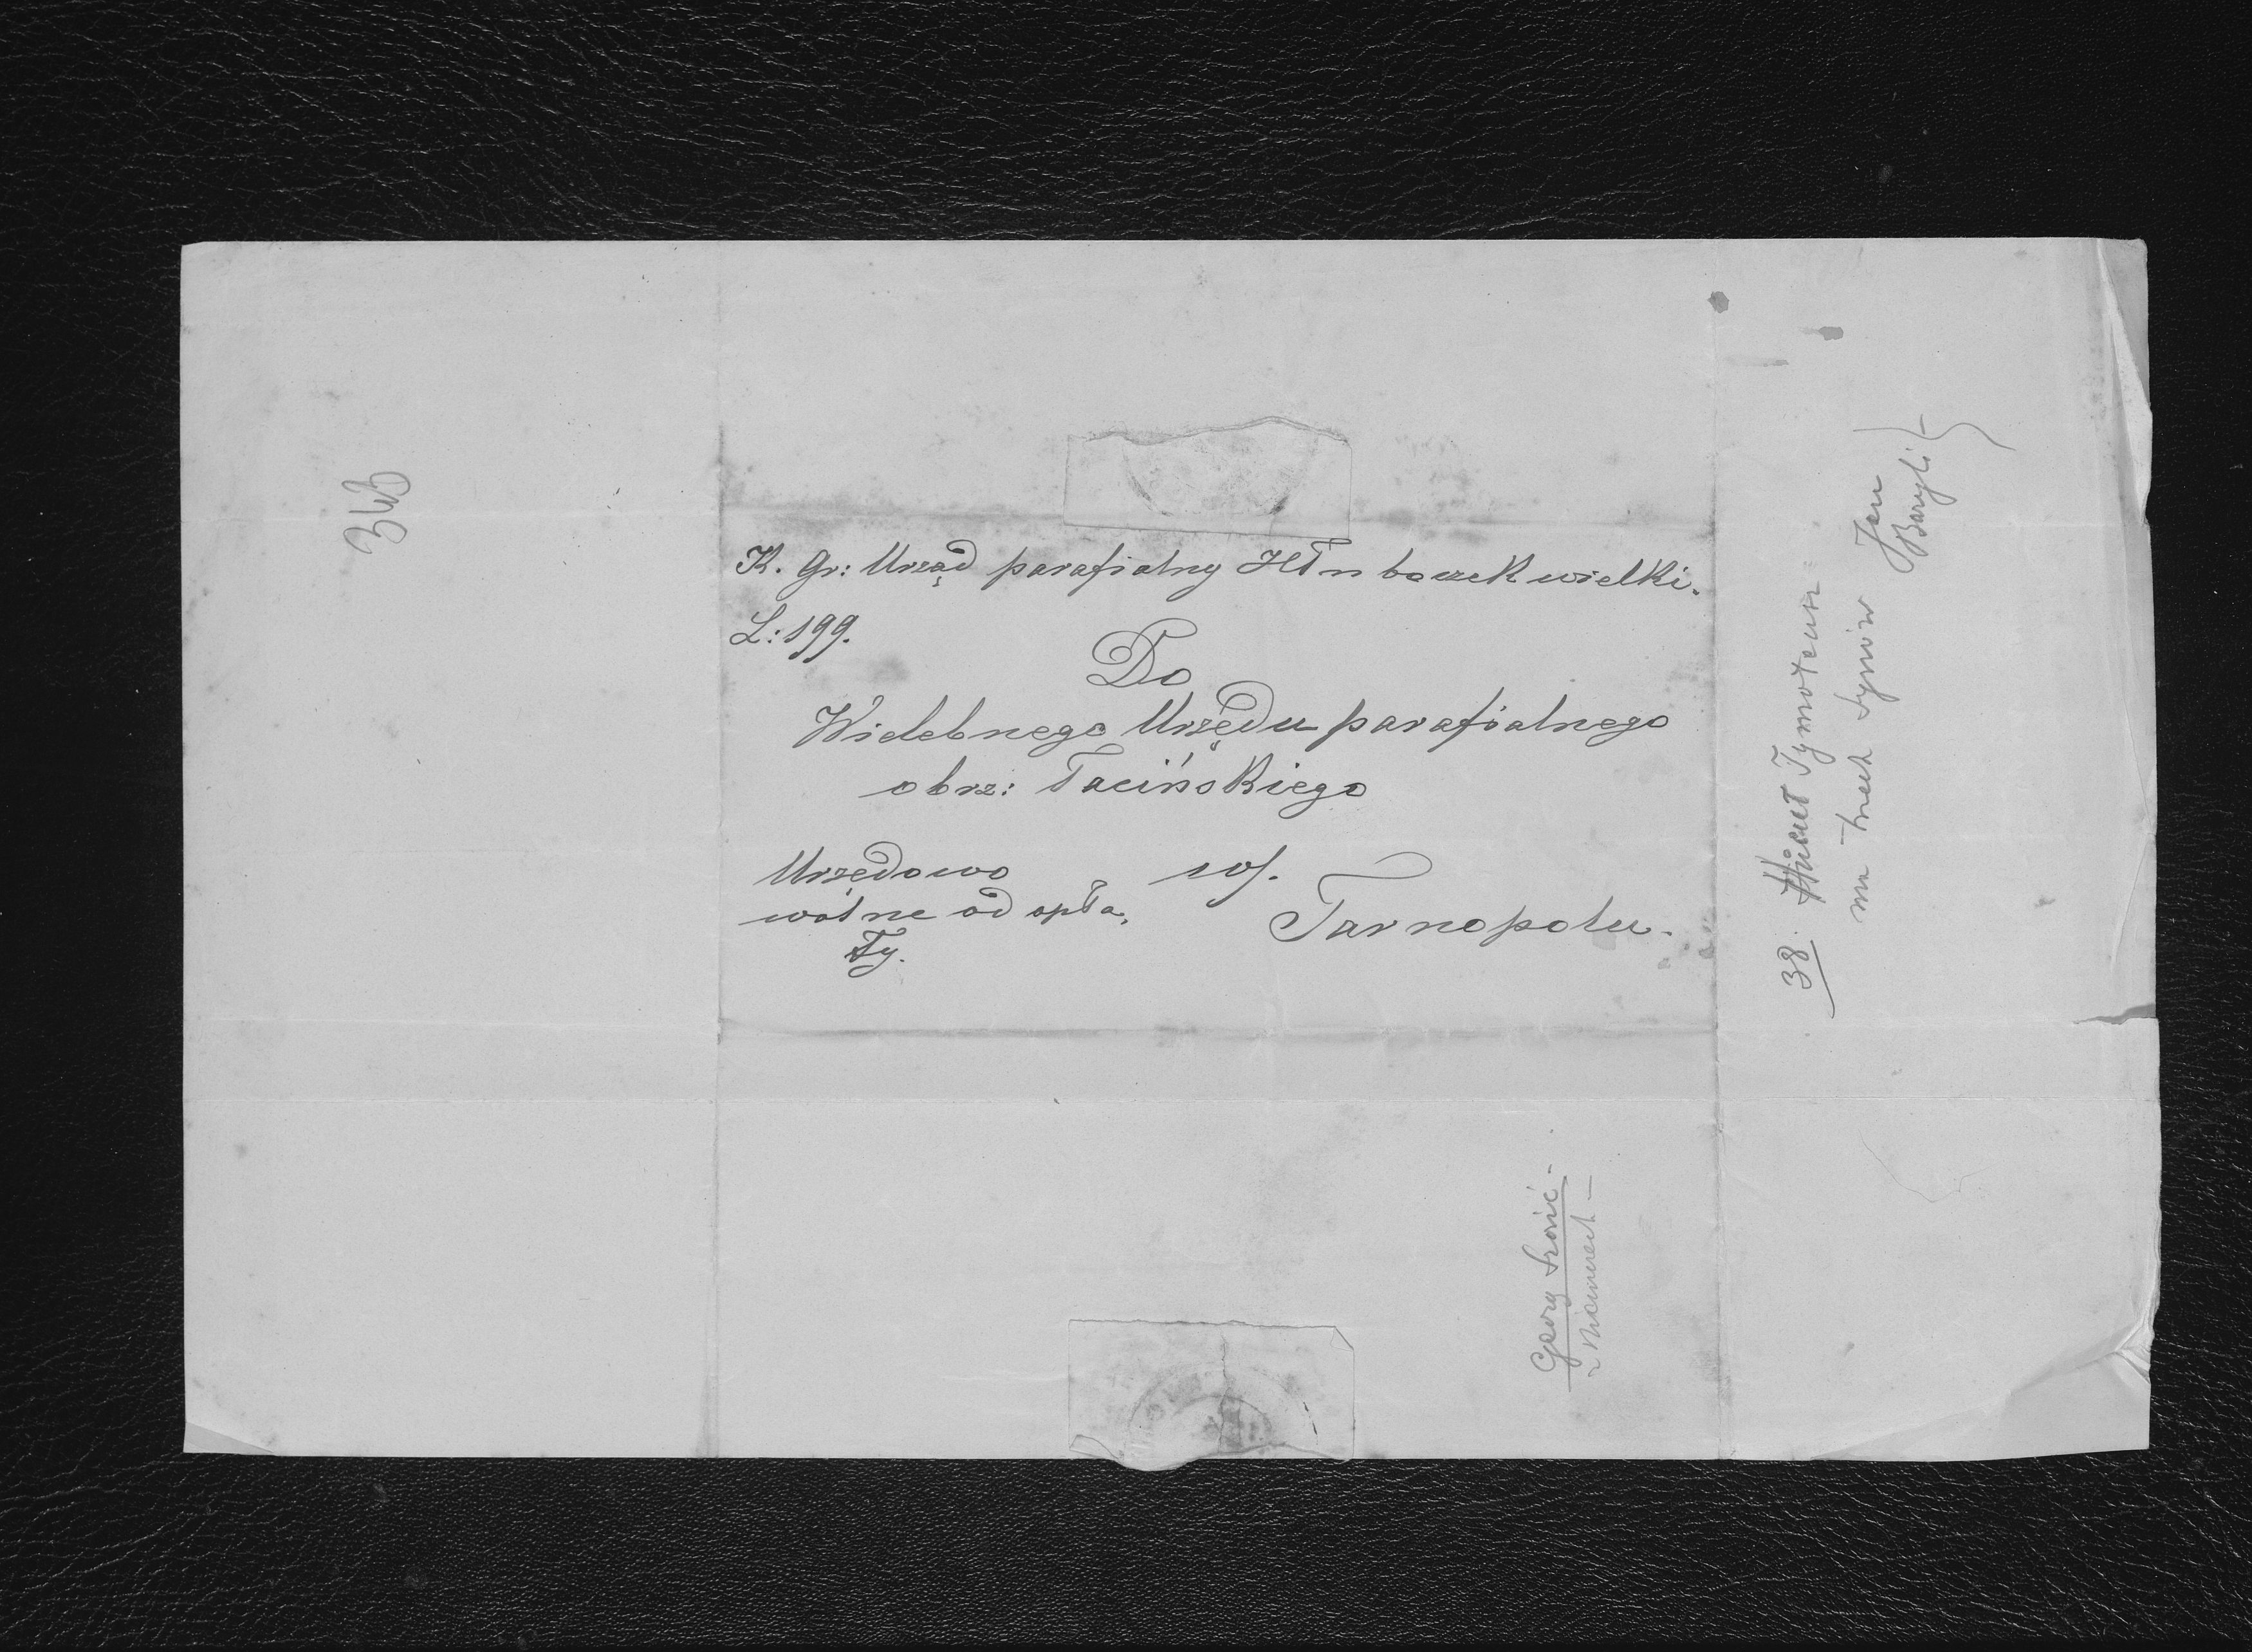 K. Gr: Urząd parafialny Hłuboczek wielki.
L: 199.
Do
Wielebnego Urzędu parafialnego
obrz: łacińskiego
Urzędowo w/.
wolne od opła,
ty.
Tarnopolu.
38. Tymoteusz
ma trzech synów
Jan
Baryli